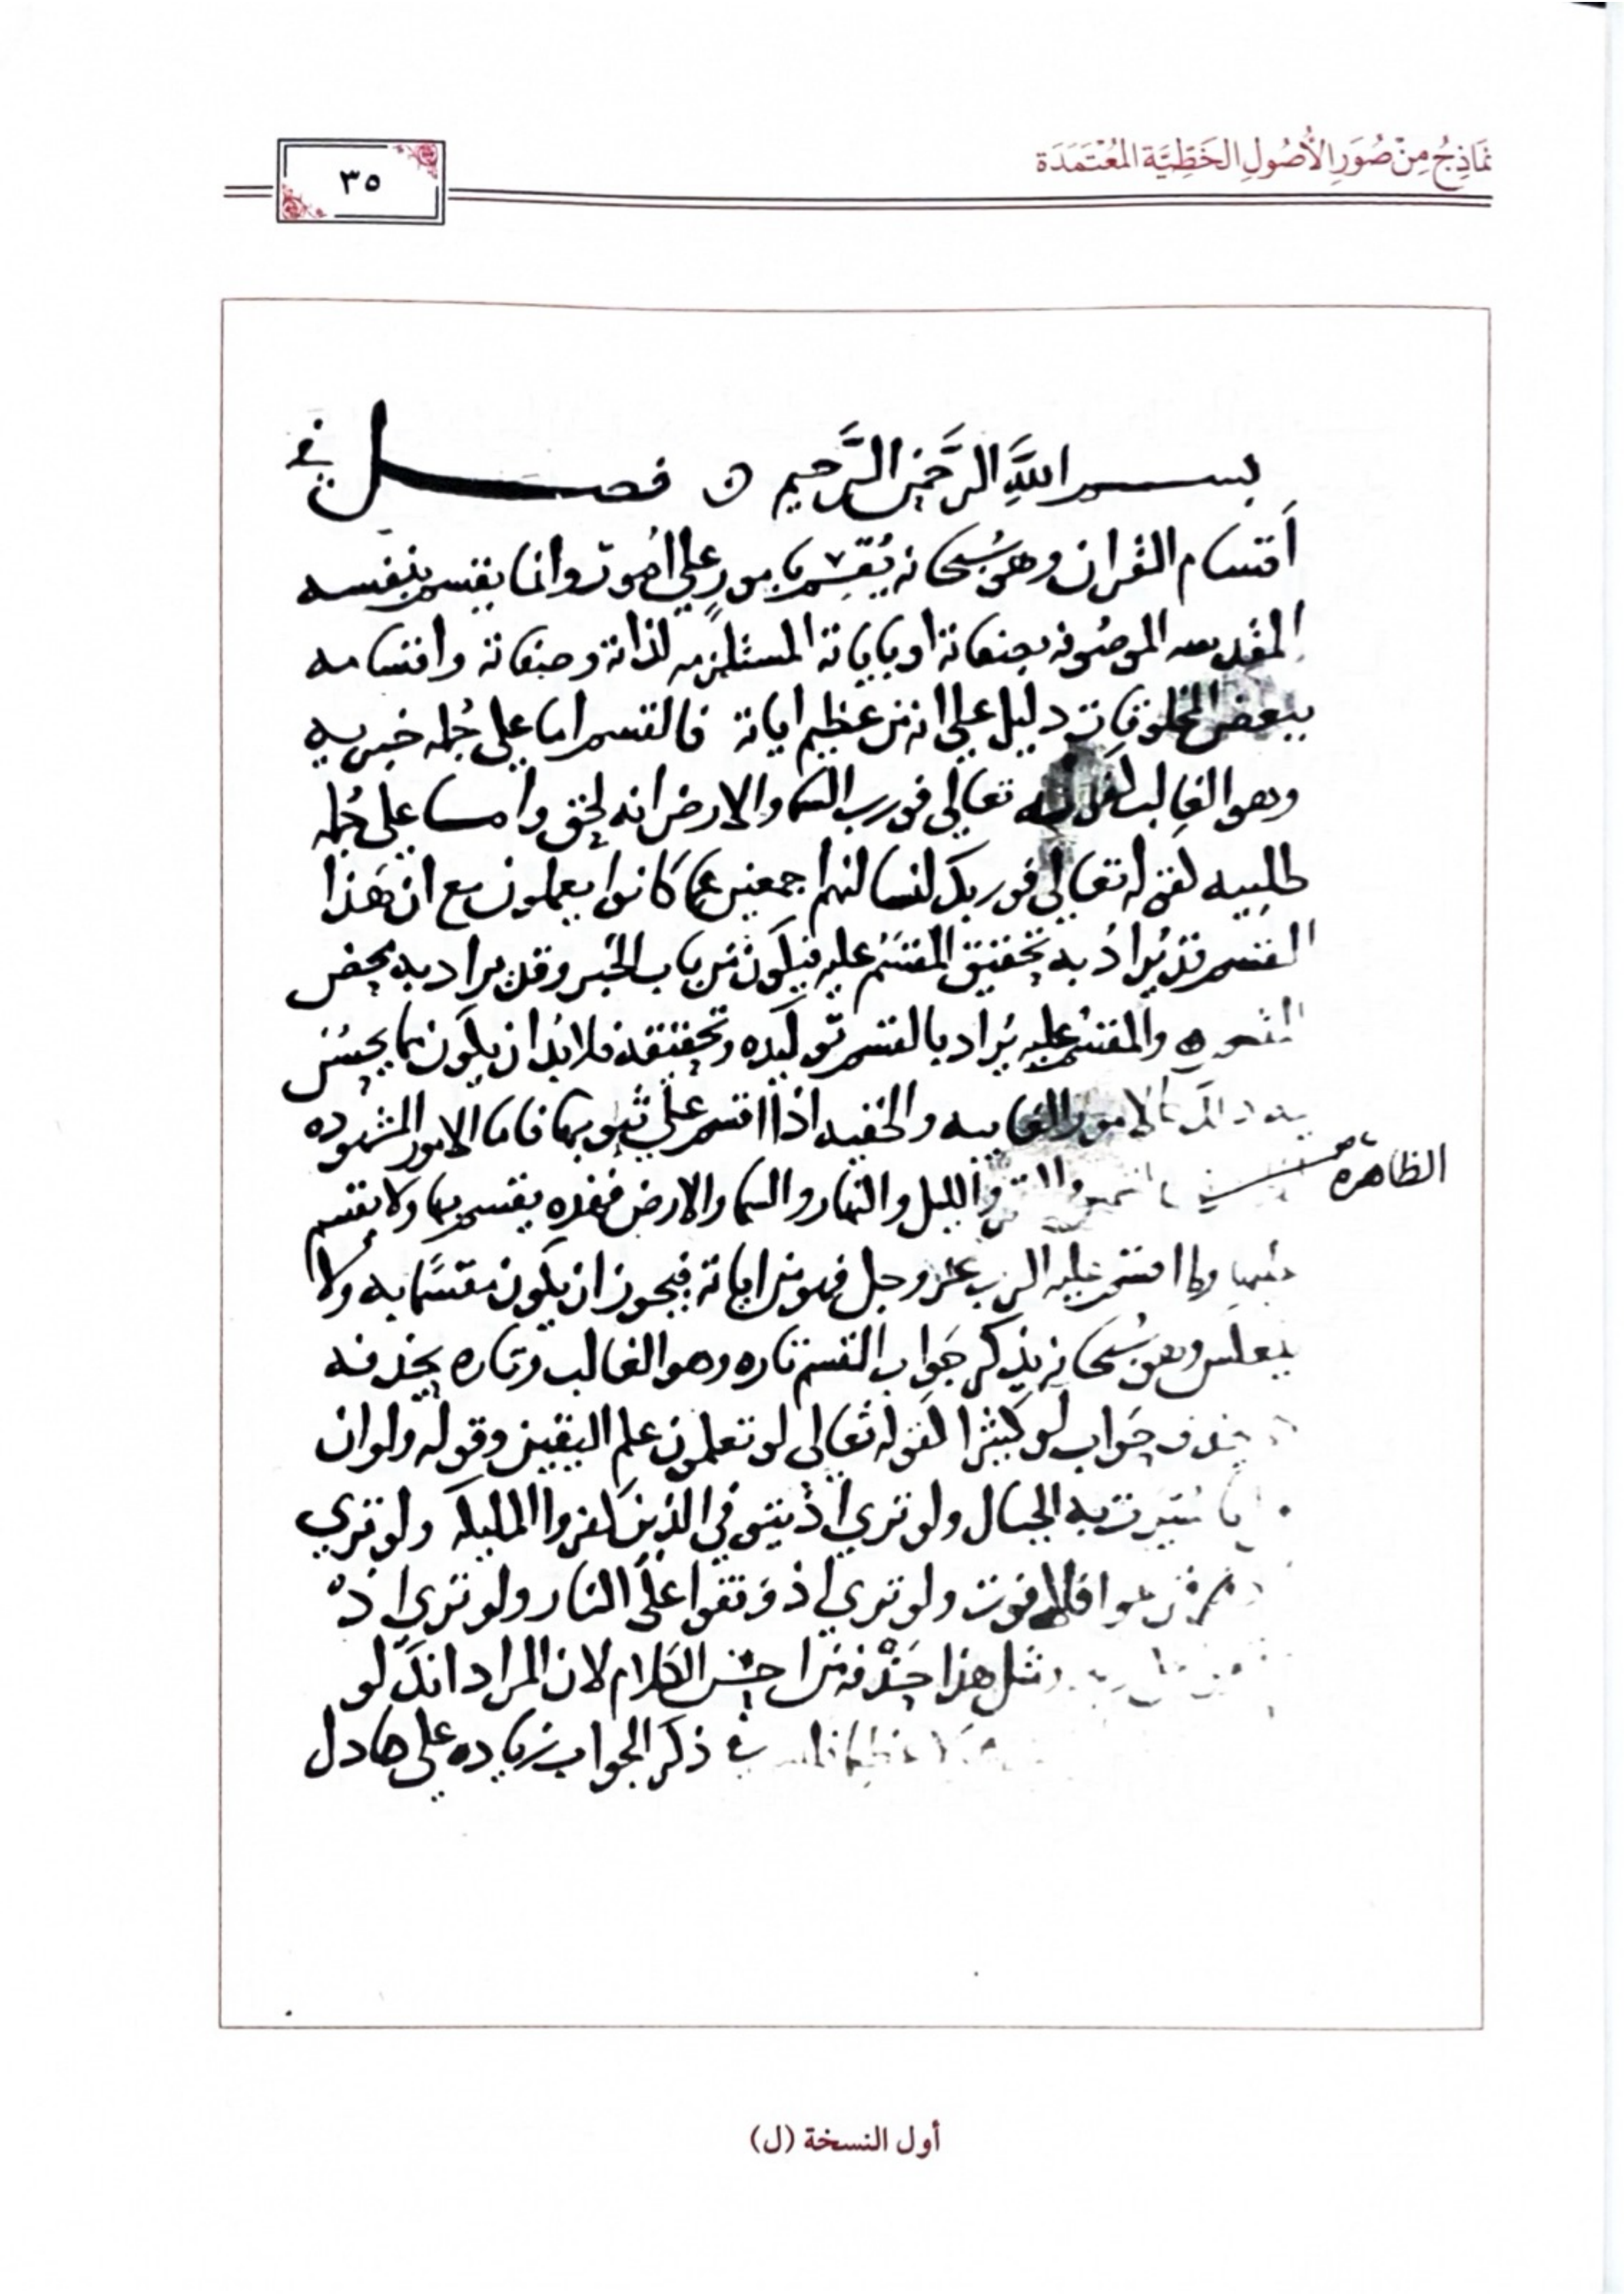 نَمَاذِجُ مِنْ صُوَرِ الْأُصُولِ الخَطِّيَّة المُعْتَمَدَة
٣٥
بسم اللَّهِ الرَّحْمَنِ الرَّحيم فصل في
أقسام القران وهو سُبحانه يُقسِم بامورٍ على اُمور وانما يقسم بنفسه
المقدسه الموصُوفه بصفاته او باياته المستلزمه لذاته وصفاته واقسامه
ببعض المخلوقات دليل على انه من عظيم اياته فالقسم اما على جُمله خبريه
وهو الغالب كقوله تعالى فورب السما والارض انه لحق واما على جُمله
طلبيه كقوله تعالى فوربك لنسالنهم اجمعين عما كانوا يعملون مع ان هَذا
القسم قد يُرادُ به تحقيق المقسَم عليه فيكون من باب الخبر وقد يراد به محض
القسم والمقسم عليه يُراد بالقسم توكيده وتحقيقه فلا بُد ان يكون مما يحسُن
فيه ذلك كالامور الغايبه والخفيه اذا اقسم على ثبوتها فاما الامور المشهوده
الظاهرة
والقمر والليل والنهار والسما والارض فهذه يقسم بها ولا يقسم
عليها وما اقسم عليه الرب عز وجل فهو من اياته فيجوز ان يكون مقسَمًا به ولا
ينعكس وهو سُبحانه يذكر جَواب القسم تاره وهو الغالب وتاره يحذفه
يحذف جَواب لو كثيرًا كقوله تعالى لو تعلمون علم اليقين وقوله ولو ان
سُيرت به الجبال ولو تري اذ يتوفي الذين كفروا الملايكه ولو تري
فزعوا فلا فوت ولو تري اذ وقفوا علي النار ولو تري اذ
مثل هذا حَذفه من احسن الكلام لان المراد انك لو
في ذكر الجواب زياده على ما دل
أول النسخة (ل)